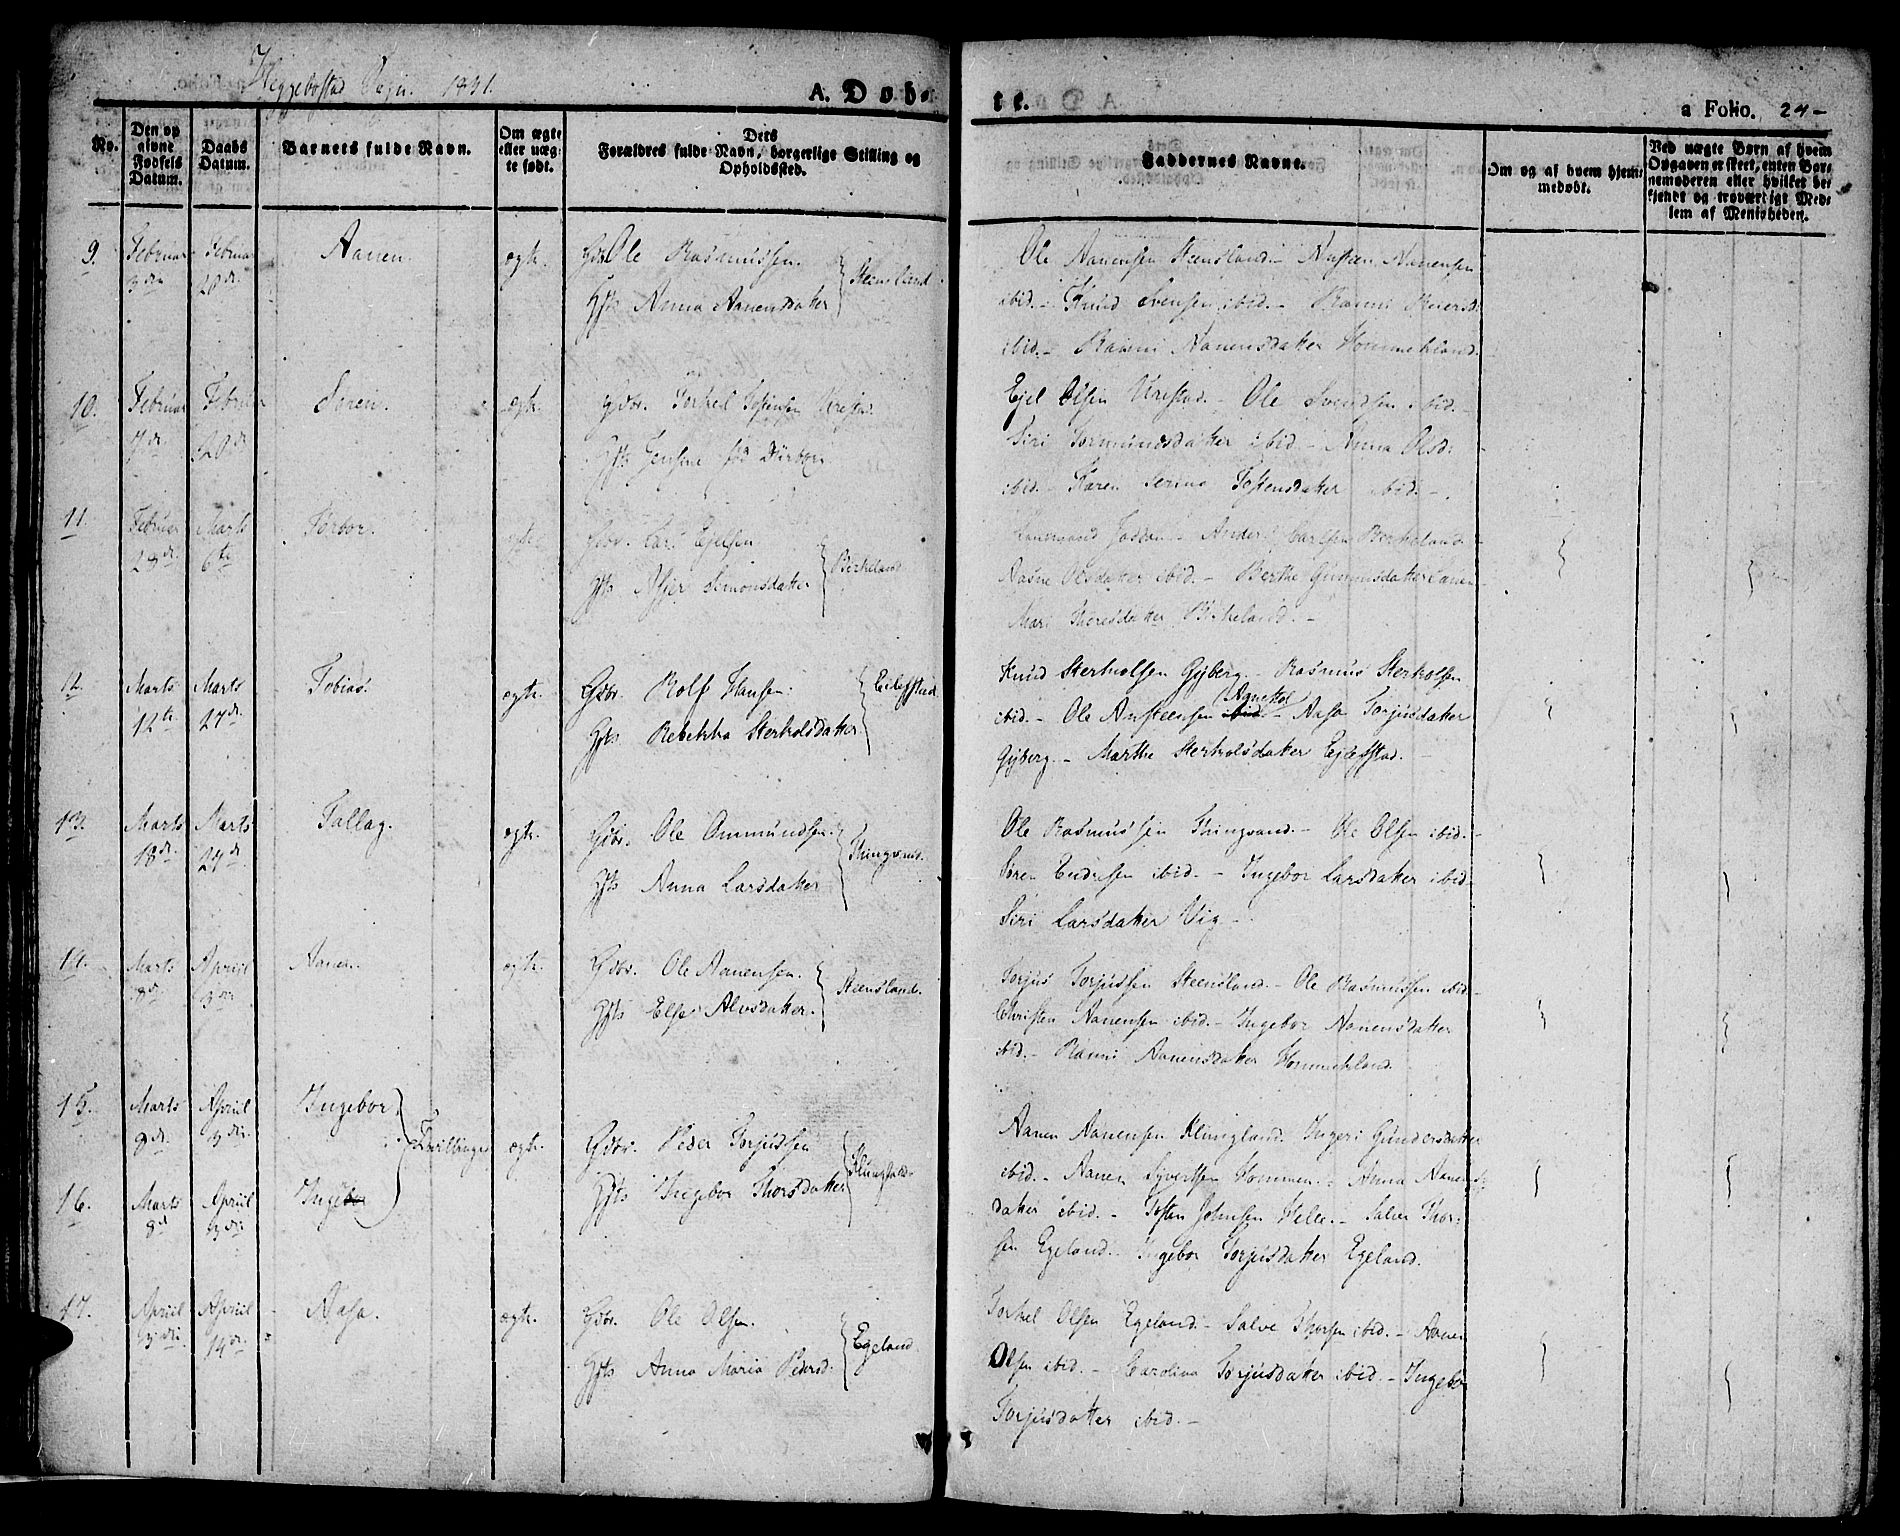 Heggebostad Sogn. 1831.
A. Døb-
te.
a Folio. 24-
No.
Den op
givne
Fødsels
Datum.
Daabs
Datum.
Barnets fulde Navn.
Om ægte
eller uæg-
te født.
Dets
Forældres fulde Navn, borgerlige Stilling og
Opholdssted.
Faddernes Navne.
Om og af hvem hjem-
medøbt.
Ved uægte Børn af hvem
Opgaven er skeet, enten Bar-
nemoderen eller hvilket be-
kjendt og troværdigt Med-
lem af Menigheden.
9. Februar Februar Aanen. ægte. Gdbr Ole Rasmussen.
3die 20de. Hft Anna Aanensdatter Steensland
Ole Aanensen Steensland - Aanensen
ibid. - Knud Svensen ibid. - Ranni
ibid. - Ranni Aanensdatter Hommekland.
10. Februar Februar Søren. ægte. Gdbr. Torkel Tostensen Urestad.
7de 20de Hft Jensine fød
Ejel Olsen Urestad. - Ole Svendsen ibid. -
Siri Tormundsdatter ibid - Anna Olsd:
ibid. - Karen Serina Tostensdatter ibid. -
11. Februar Marts Torbor. ægte Gdbr. Lars Ejelsen
28de. 6te Hft Asjer Simonsdatter Birkeland
Anders Larsen Birkeland -
Aasne Olsdatter ibid. - Berthe Gunnusdatter
Mari Thoresdatter Birkeland. -
12. Marts Marts Tobias. ægte. Gdbr. Rolf Hansen:
12te 27de. Hft Rebekka Sterkolsdatter. Eilefstad
Knud Sterkolsen Gyberg. - Rasmus Sterkolsen
ibid. - Ole Anstensen ibid Agnestol - Aasa Torjusdatter
Gyberg. - Marthe Sterkolsdatter Ejlefstad.
13. Marts Marts Tallag. ægte. Gdbr. Ole Ommundsen.
18de. 27de Hft Anna Larsdatter Thingvand.
Ole Rasmussen Thingvand. - Ole Olsen ibid. -
Søren Endresen ibid. - Ingebor Larsdatter ibid -
Siri Larsdatter Vig -
14. Marts Apriil Aanen. ægte. Gdbr. Ole Aanensen.
8de 3die Hft Else Alvsdatter. Steensland.
Torjus Torjussen Steensland. - Ole Rasmussen ibid -
Christen Aanensen ibid. - Ingebor Aanensdatter
ibid. - Ranni Aanensdatter Hommekland
15. Marts Apriil Ingebor. Tvillinger ægte. Gdbr. Peder Torjussen
8de. 3die. Hft Ingebor Thorsdatter Klungland.
16. Marts Apriil Ingebor
8de 3die
Aanen Aanensen Klungland. Ingeri Gundersdatter
ibid. - Aanen Syvertsen Hommen. - Anna Aanens-
datter ibid. - Tosten Johnsen Helle. - Salve Thor-
sen Egeland. Ingebor Torjusdatter Egeland.
17. Apriil Apriil Aasa. ægte. Gdbr. Ole Olsen.
3die 14de. Hft Anna Maria Pedersd. Egeland
Torkel Olsen Egeland. - Salve Thorsen ibid. - Aanen
Olsen ibid. - Carolina Torjusdatter ibid. - Ingebor
Torjusdatter ibid. -